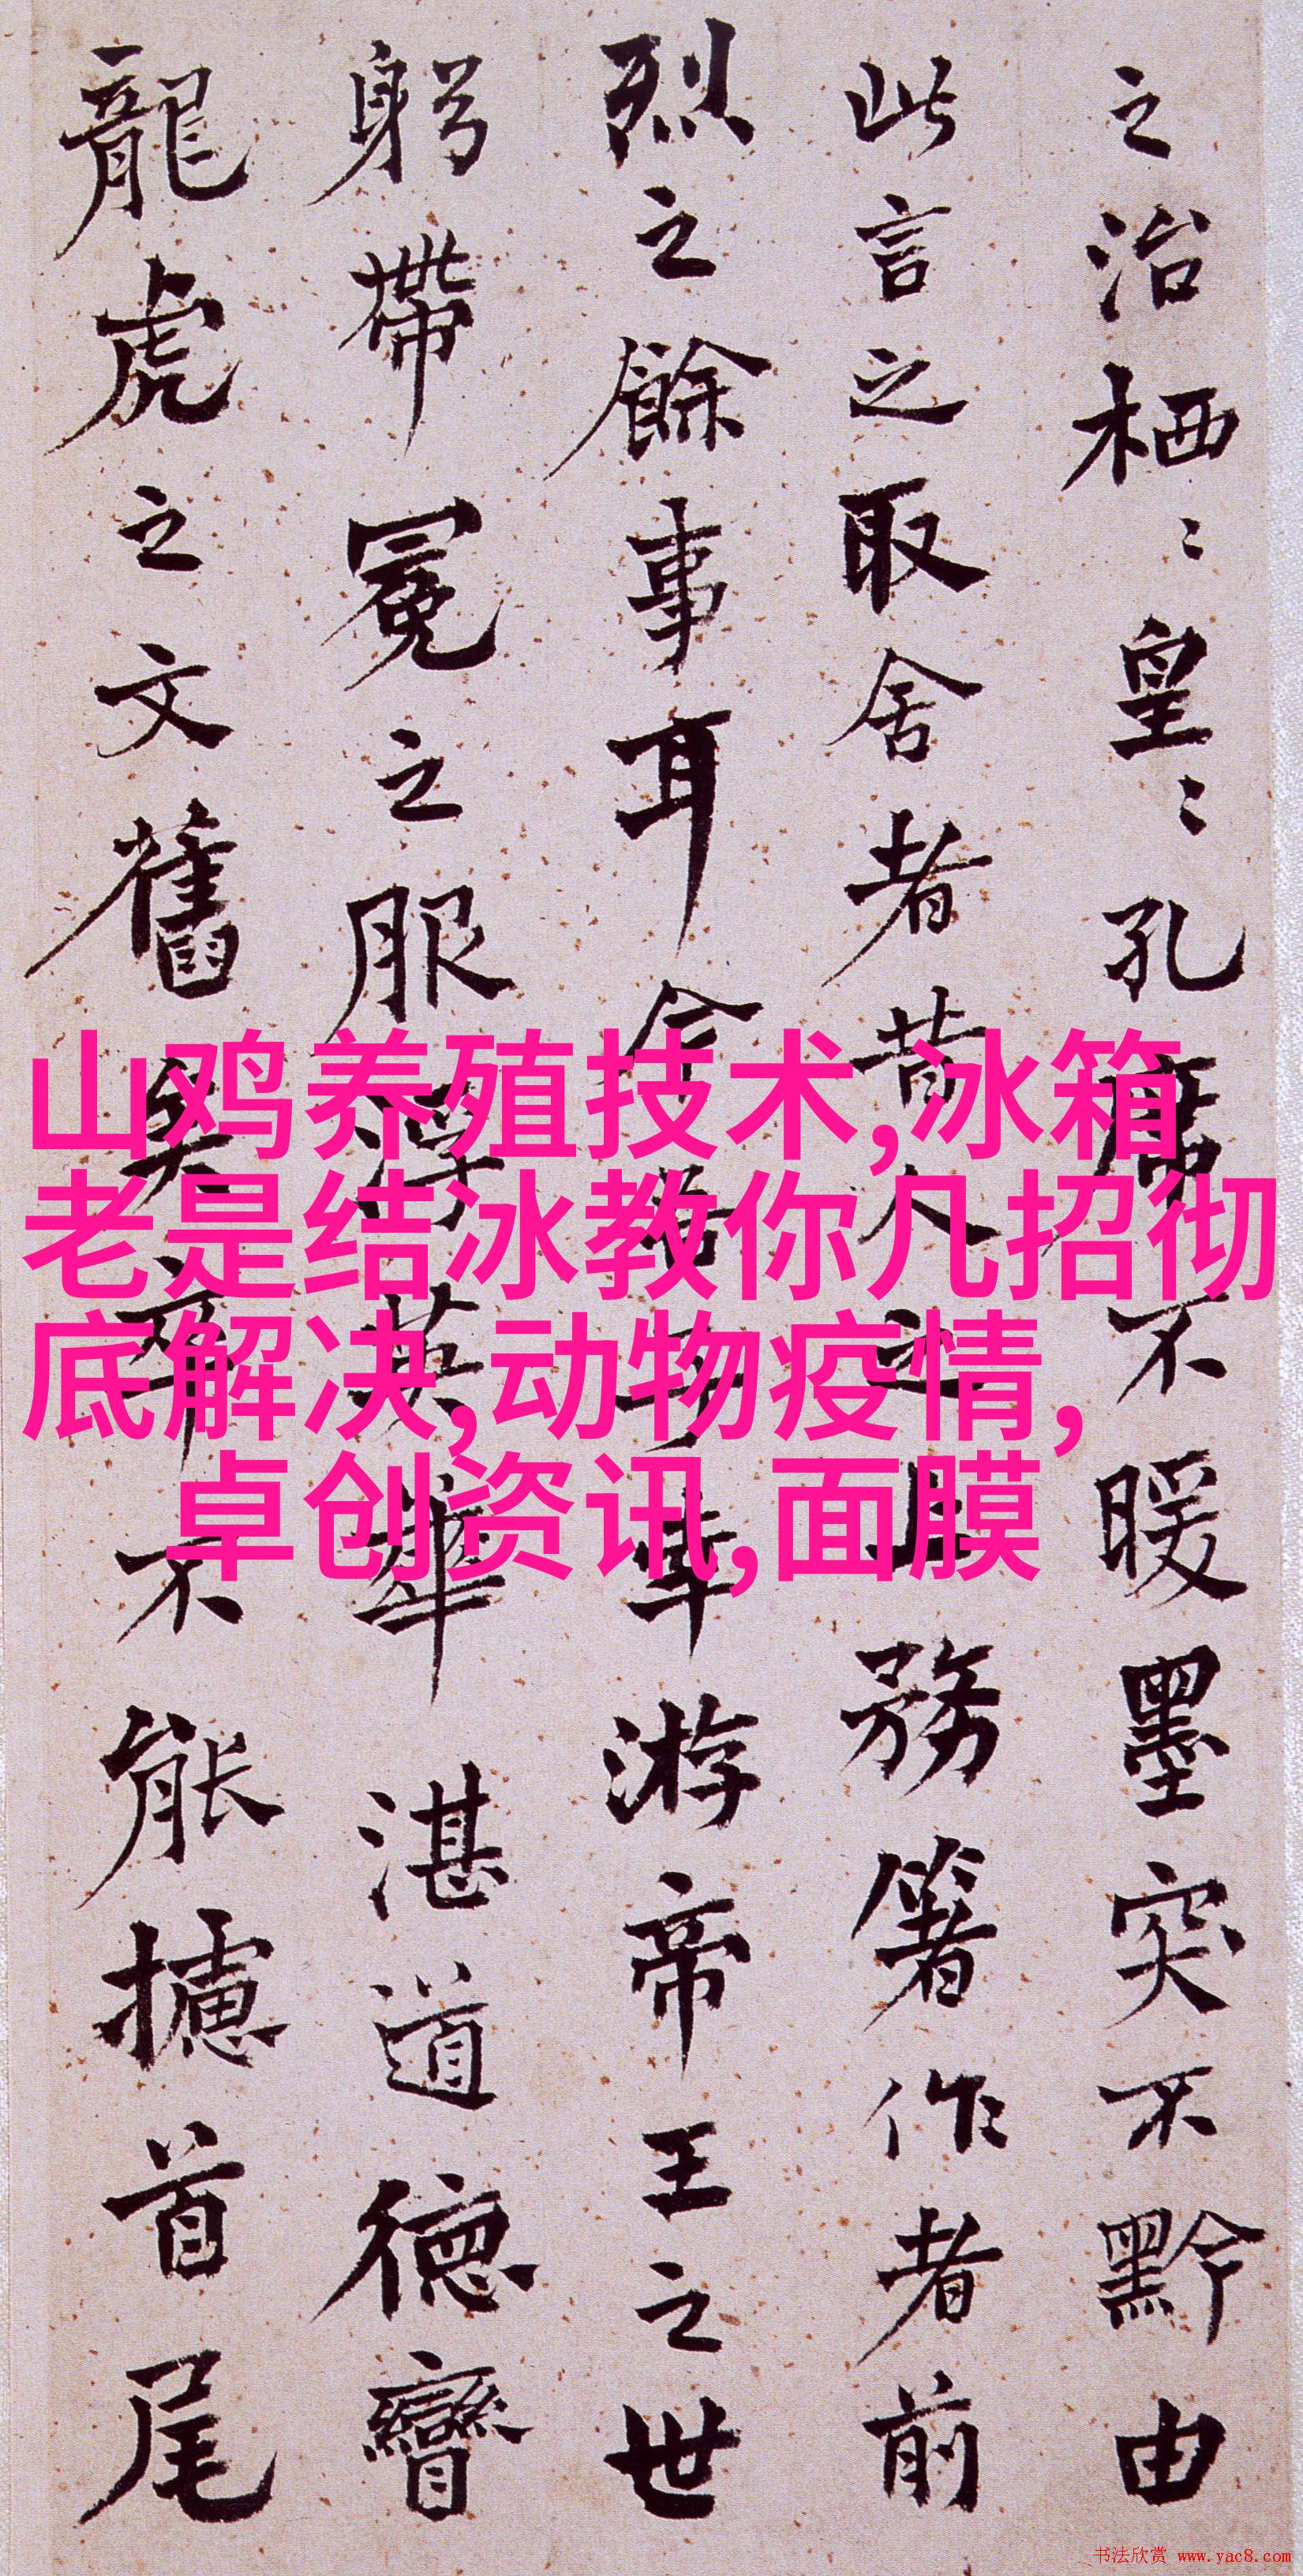 之治栖〻皇〻孔席不暖墨突不黔由
此言之取舍者昔人之上務箸作者前
烈之餘事耳今吾子幸游帝王之世
躬帶冕之服浮英華湛道德矕
龍虎之文舊矣卒不能攄首尾
山鸡养殖技术,冰箱
老是结冰教你几招彻
底解决,动物疫情,
卓创资讯,面膜
书法欣赏 www.yac8.com